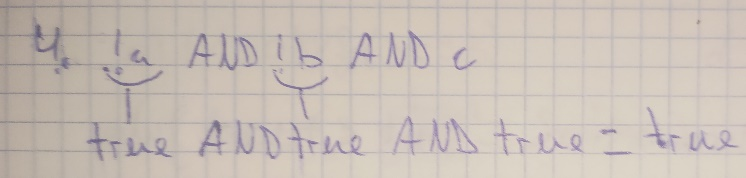 4. !a AND !b AND c
true AND true AND true = true